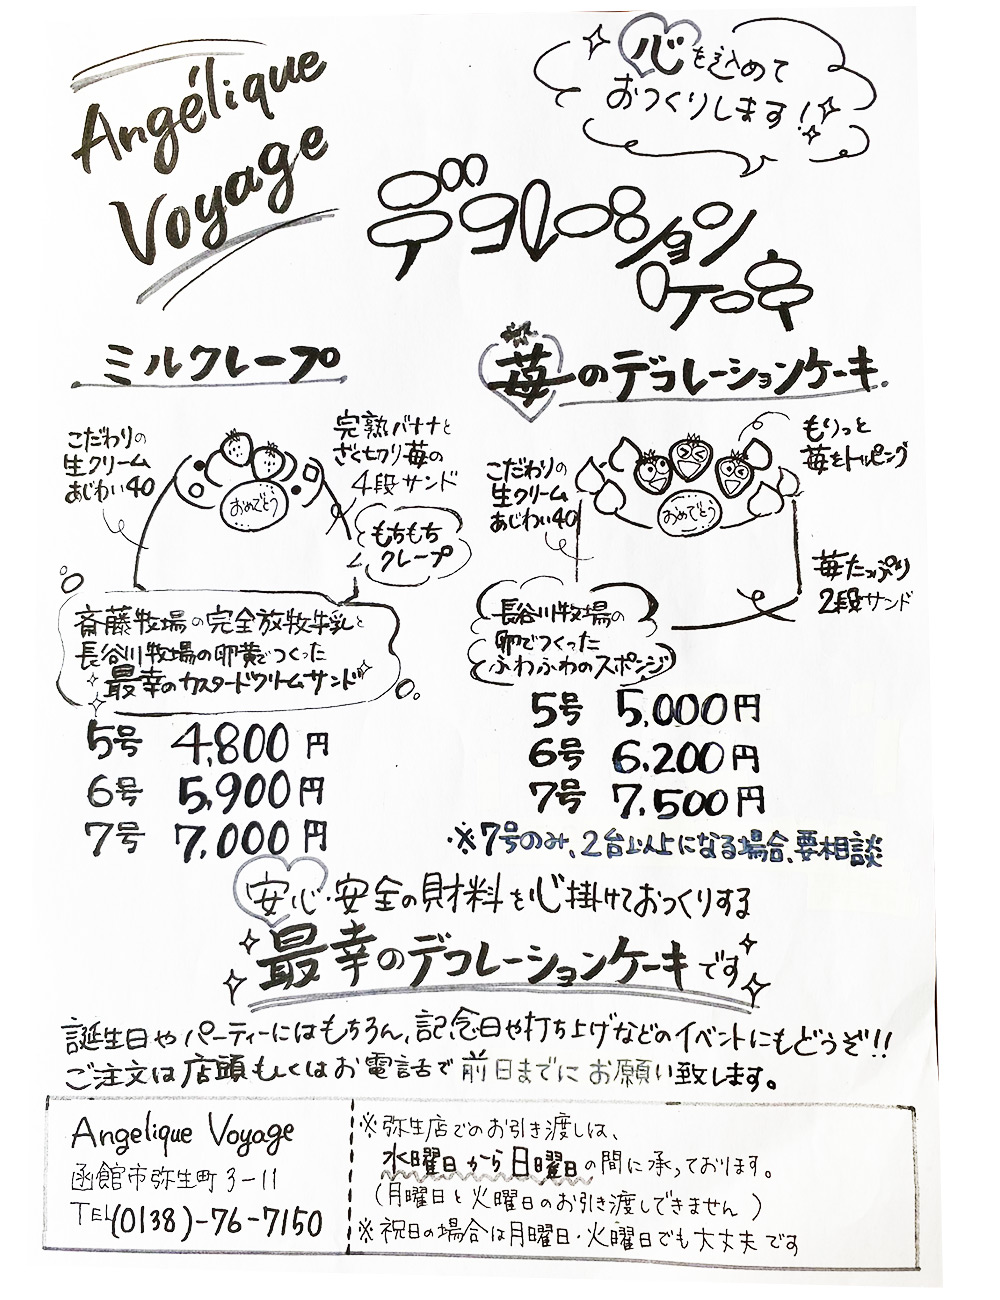 Angélique
Voyage
心を込めて
おつくりします!
デコレーション
ケーキ
ミルクレープ
こだわりの
生クリーム
あじわい40
完熟バナナと
ざく切り苺の
4段サンド
おめでとう
もちもち
クレープ
斉藤牧場の完全放牧牛乳と
長谷川牧場の卵黄でつくった
最幸のカスタードクリームサンド
5号 4,800円
6号 5,900円
7号 7,000円
苺のデコレーションケーキ
こだわりの
生クリーム
あじわい40
もりっと
苺をトッピング
おめでとう
苺たっぷり
2段サンド
長谷川牧場の
卵でつくった
ふわふわのスポンジ
5号 5,000円
6号 6,200円
7号 7,500円
※7号のみ、2台以上になる場合、要相談
安心・安全の財料を心掛けておつくりする
最幸のデコレーションケーキです
誕生日やパーティーにはもちろん、記念日や打ち上げなどのイベントにもどうぞ!!
ご注文は店頭もしくはお電話で前日までにお願い致します。
Angelique Voyage
函館市弥生町3-11
TEL(0138)-76-7150
※弥生店でのお引き渡しは、
水曜日から日曜日の間に承っております。
(月曜日と火曜日のお引き渡しできません)
※祝日の場合は月曜日・火曜日でも大丈夫です